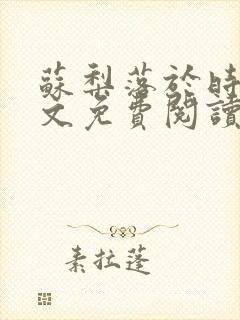 蘇梨落於時
文免費閱讀
素拉蓬